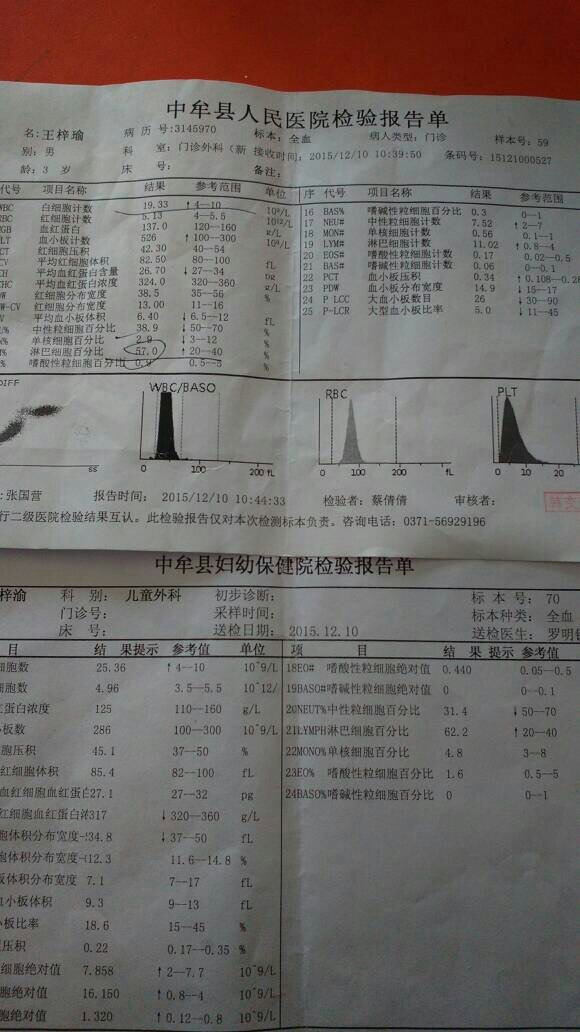 中牟县人民医院检验报告单
名:王梓瑜 病 历 号:3145970 标本:全血 病人类型:门诊 样本号:59
别:男 科 室:门诊外科(新 接收时间:2015/12/10 10:39:50 条码号:15121000527
龄:3 岁 床 号: 备注:
代号 项目名称 结果 参考范围 单位
WBC 白细胞计数 19.33 ↑4—10 10⁹/L
RBC 红细胞计数 5.13 4—5.5
HGB 血红蛋白 137.0 120—160 g/L
PLT 血小板计数 526 ↑100—300 10⁹/L
红细胞压积 42.30 40—54 %
CV 平均红细胞体积 82.50 80—100 fL
CH 平均血红蛋白含量 26.70 ↓27—34 pg
CHC 平均血红蛋白浓度 324.0 320—360 g/L
DW 红细胞分布宽度 38.5 35—56
W-CV 红细胞分布宽度 13.00 11—16 %
V 平均血小板体积 6.40 ↓6.5—12 fL
% 中性粒细胞百分比 38.9 ↓50—70 %
% 单核细胞百分比 2.9 ↓3—12 %
% 淋巴细胞百分比 57.0 ↑20—40 %
% 嗜酸性粒细胞百分比 0.9 0.5—5 %
序 代号 项目名称 结果 参考范围
16 BAS% 嗜碱性粒细胞百分比 0.3 0—1
17 NEU# 中性粒细胞计数 7.52 ↑2—7
18 MON# 单核细胞计数 0.56 0.1—1
19 LYM# 淋巴细胞计数 11.02 ↑0.8—4
20 EOS# 嗜酸性粒细胞计数 0.17 0.02—0.5
21 BAS# 嗜碱性粒细胞计数 0.06 0—0.1
22 PCT 血小板压积 0.34 ↑0.108—0.28
23 PDW 血小板分布宽度 14.9 ↓15—17
24 P LCC 大血小板数目 26 ↓30—90
25 P-LCR 大型血小板比率 5.0 ↓11—45
DIFF
WBC/BASO
RBC
PLT
SS 0 100 200 fL 0 100 200 fL 0 10 20
:张国营 报告时间: 2015/12/10 10:44:33 检验者:蔡倩倩 审核者:
行二级医院检验结果互认。此检验报告仅对本次检测标本负责。咨询电话:0371-56929196
中牟县妇幼保健院检验报告单
梓渝 科 别: 儿童外科 初步诊断: 标 本 号: 70
门诊号: 采样时间: 标本种类: 全血
床 号: 送检日期: 2015.12.10 送检医生: 罗明
目 结 果提示 参考值 单位
细胞数 25.36 ↑4—10 10^9/L
细胞数 4.96 3.5—5.5 10^12/
红蛋白浓度 125 110—160 g/L
小板数 286 100—300 10^9/L
胞压积 45.1 37—50 %
红细胞体积 85.4 82—100 fL
红细胞血红蛋白27.1 27—32 pg
红细胞血红蛋白浓317 ↓320—360 g/L
胞体积分布宽度-34.8 ↓37—50 fL
胞体积分布宽度-12.3 11.6—14.8 %
板体积分布宽度 7.1 7—17 fL
血小板体积 9.3 9—13 fL
小板比率 18.6 15—45 %
压积 0.22 0.17—0.35 %
细胞绝对值 7.858 ↑2—7.7 10^9/L
胞绝对值 16.150 ↑0.8—4 10^9/L
胞绝对值 1.320 ↑0.12—0.8 10^9/L
项 目 结 果 提示 参考值
18EO# 嗜酸性粒细胞绝对值 0.440 0.05—0.5
19BASO#嗜碱性粒细胞绝对值 0 0—0.1
20NEUT%中性粒细胞百分比 31.4 ↓50—70
21LYMPH淋巴细胞百分比 62.2 ↑20—40
22MONO%单核细胞百分比 4.8 3—8
23EO% 嗜酸性粒细胞百分比 1.6 0.5—5
24BASO%嗜碱性粒细胞百分比 0 0—1